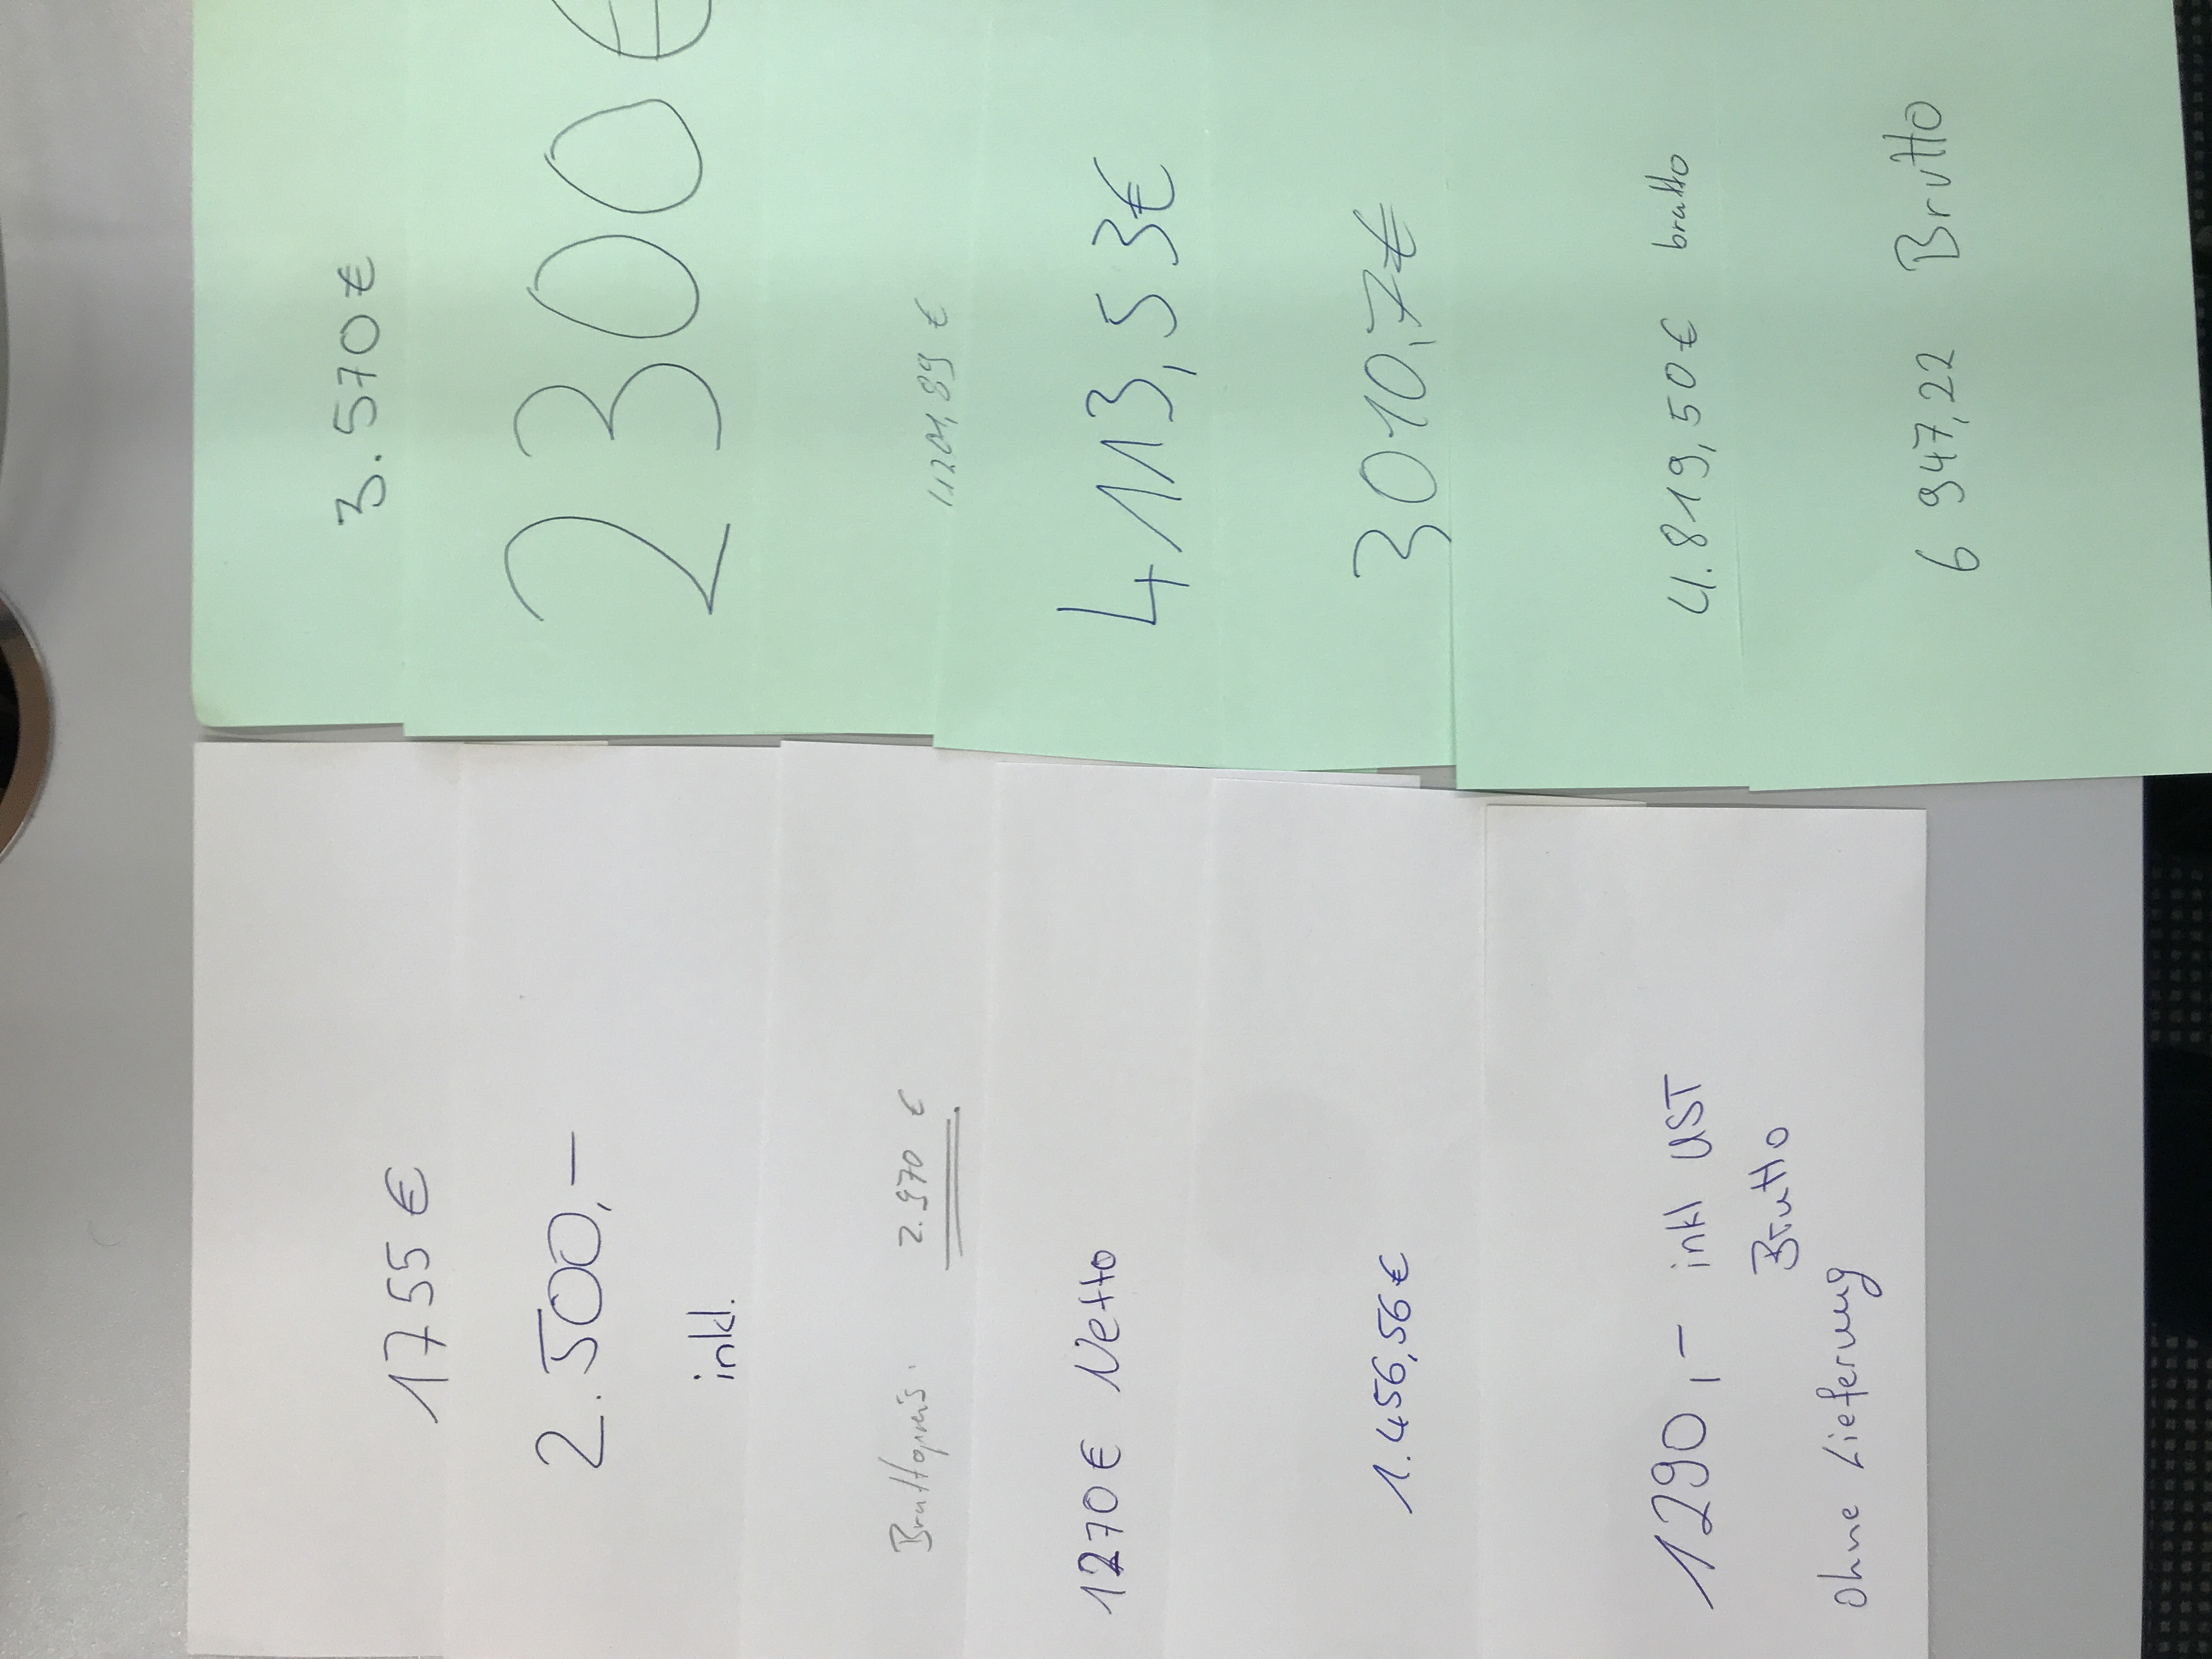 1755€
2.500,-
inkl.
Bruttopreis. 2.970 €
1270€ Netto
1.456,56€
1290,- inkl UST
Brutto
ohne Lieferung
3.570€
2300€
4113,53€
3010,7€
4.819,50€ brutto
6 947,22 Brutto